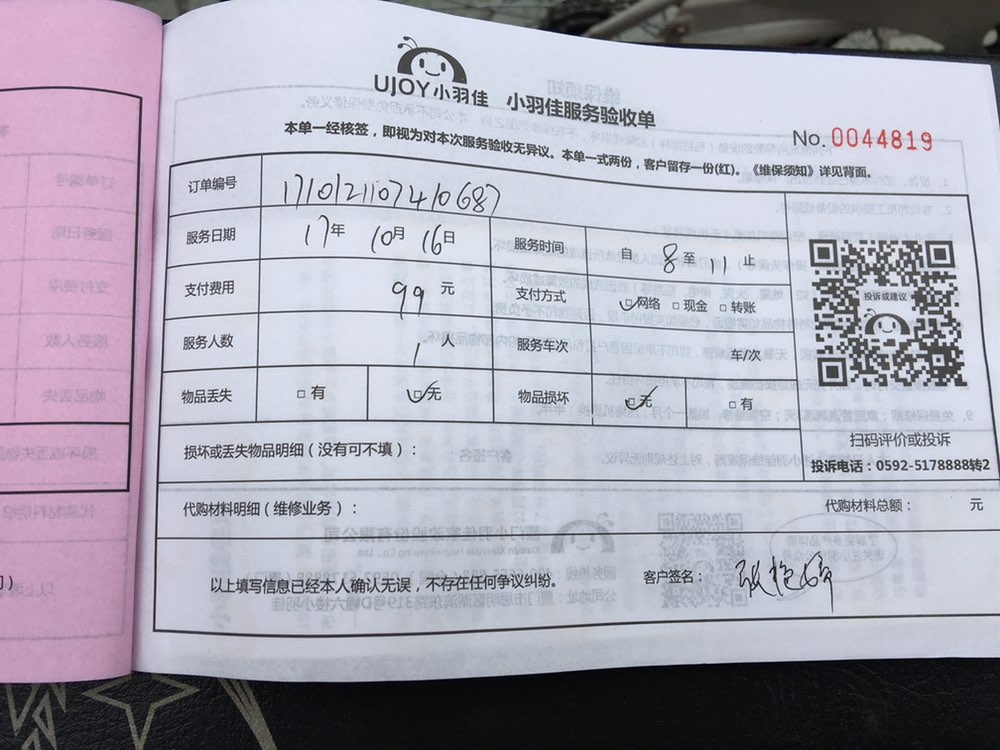 UJOY小羽佳 小羽佳服务验收单
本单一经核签，即视为对本次服务验收无异议。本单一式两份，客户留存一份(红)。《维保须知》详见背面。
No. 0044819
订单编号 1710121107410687
服务日期 17年 10月 16日 服务时间 自 8 至 11 止
支付费用 99 元 支付方式 ☑网络 □现金 □转账
服务人数 1 人 服务车次 车/次
物品丢失 □有 ☑无 物品损坏 ☑无 □有
投诉或建议
扫码评价或投诉
投诉电话：0592-5178888转2
损坏或丢失物品明细（没有可不填）：
代购材料明细（维修业务）： 代购材料总额： 元
以上填写信息已经本人确认无误，不存在任何争议纠纷。 客户签名：